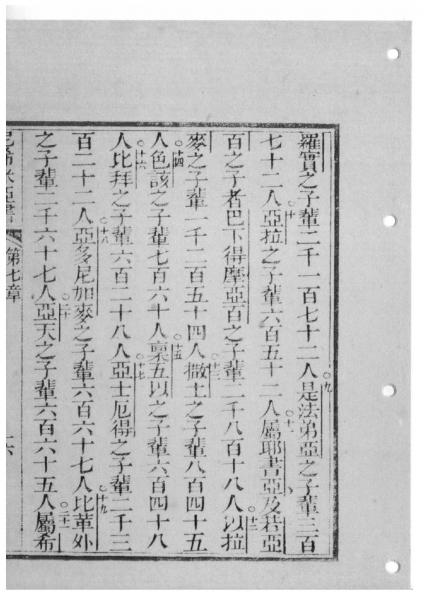 羅實之子輩二千一百七十二人○九是法弟亞之子輩三百
七十二人○十亞拉之子輩六百五十二人○十一屬耶書亞及若亞
百之子者巴下得摩亞百之子輩二千八百十八人○十二以拉
麥之子輩一千二百五十四人○十三撒土之子輩八百四十五
○十四人色該之子輩七百六十人○十五稟五以之子輩六百四十八
○十六人比拜之子輩六百二十八人○十七亞士厄得之子輩二千三
百二十二人○十八亞多尼加麥之子輩六百六十七人○十九比革外
之子輩二千六十七人○二十亞天之子輩六百六十五人○二十一屬希
尼希米亞書 第七章